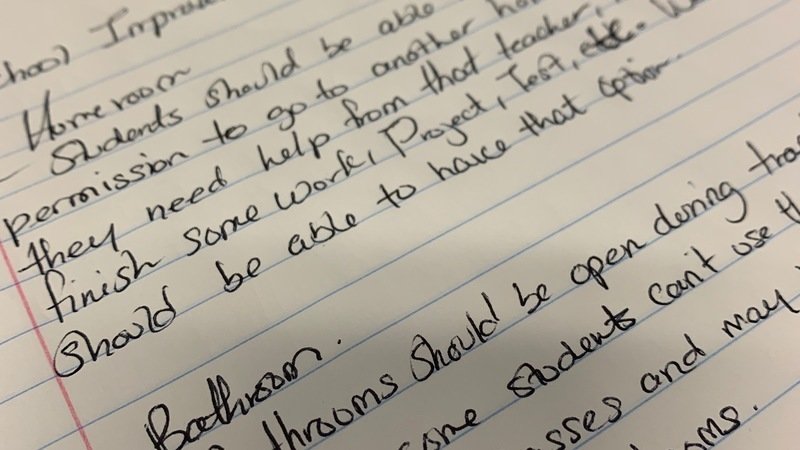 Homeroom
- Students should be able
permission to go to another
they need help from that teacher,
finish some work, Project, Test, etc.
should be able to have that option.
Bathroom.
throoms should be open during
some students can't use
asses and may
oms.